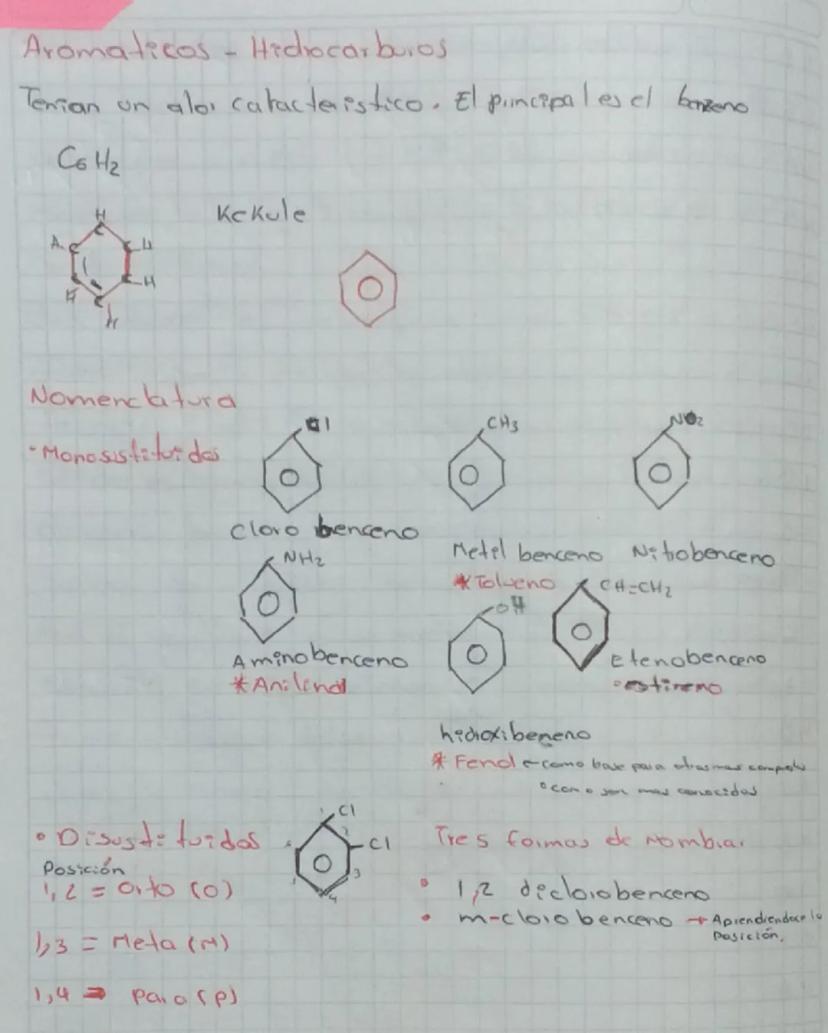 Aromaticos - Hidrocarburos
Tenian un olor catacteristico. El principal es el benzeno
C6 H2
Kekule
H
A H
H H
H
Nomenclatura
- Monosustituidos
Cl
CH3
NO2
Cloro benceno
Metil benceno
Nitrobenceno
* Tolueno
NH2
OH
CH=CH2
Aminobenceno
* Anilina
Etenobenceno
estireno
hidroxibeneno
* Fenol como base para otras mas
como son mas conocidos
• Disustituidos
Posición
1,2 = Orto (O)
1,3 = Meta (M)
1,4 = Para (P)
1 Cl
2 Cl
3
4
Tres formas de nombrar
• 1,2 diclorobenceno
• m-clorobenceno → Aprendiendose lo
Posición.